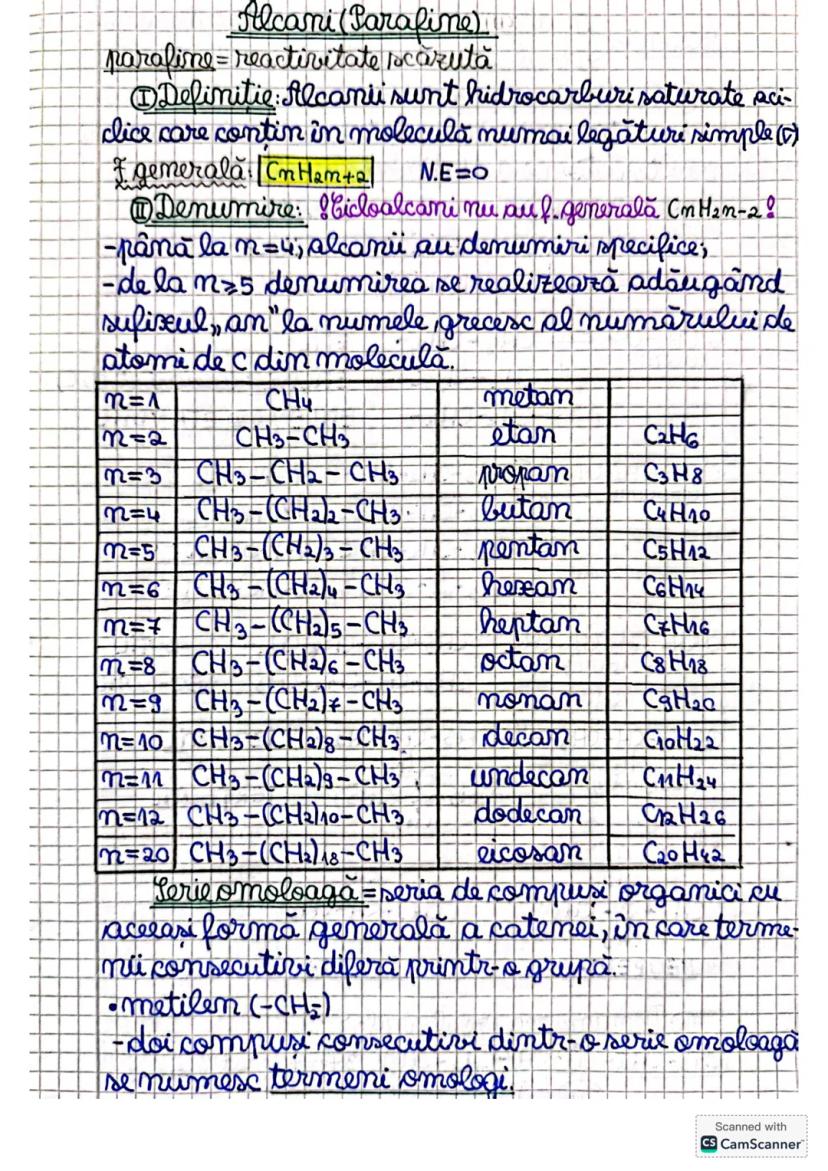 Alcani (Parafine)
parafine = reactivitate scăzută
I Definiție: Alcanii sunt hidrocarburi saturate aci-
clice care conțin în moleculă numai legături simple (σ)
f generală: CnH2n+2 N.E=0
II Denumire: !Cicloalcani nu au f. generală CnH2n-2!
-până la n=4, alcanii au denumiri specifice;
-de la n≥5 denumirea se realizează adăugând
sufixul „an" la numele grecesc al numărului de
atomi de C din moleculă.
n=1 CH4 metan
n=2 CH3-CH3 etan C2H6
n=3 CH3-CH2-CH3 propan C3H8
n=4 CH3-(CH2)2-CH3 butan C4H10
n=5 CH3-(CH2)3-CH3 pentan C5H12
n=6 CH3-(CH2)4-CH3 hexan C6H14
n=7 CH3-(CH2)5-CH3 heptan C7H16
n=8 CH3-(CH2)6-CH3 octan C8H18
n=9 CH3-(CH2)7-CH3 nonan C9H20
n=10 CH3-(CH2)8-CH3 decan C10H22
n=11 CH3-(CH2)9-CH3 undecan C11H24
n=12 CH3-(CH2)10-CH3 dodecan C12H26
n=20 CH3-(CH2)18-CH3 eicosan C20H42
Serie omoloagă = seria de compuși organici cu
aceeași formă generală a catenei, în care terme-
nii consecutivi diferă printr-o grupă.
•metilen (-CH2-)
-doi compuși consecutivi dintr-o serie omoloagă
se numesc termeni omologi.
Scanned with
CS CamScanner